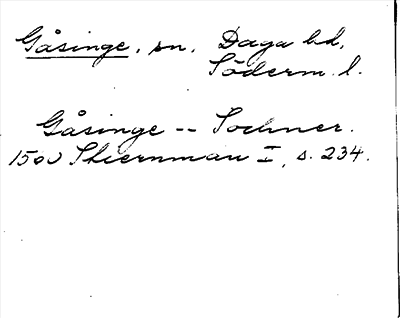 Gåsinge, sn. Daga hd,
Söderm. l.
Gåsinge -- Sochner.
1500 Stiernman I, s. 234.